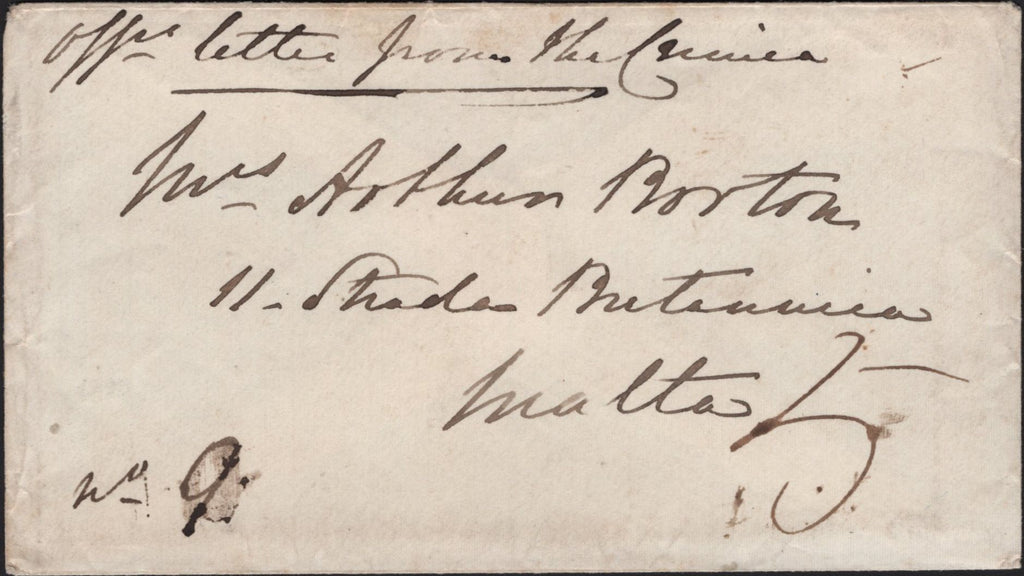 Offrs letter from the Crimea
Mrs Arthur Borton
11 - Strada Britannica
Malta
5
No 9.